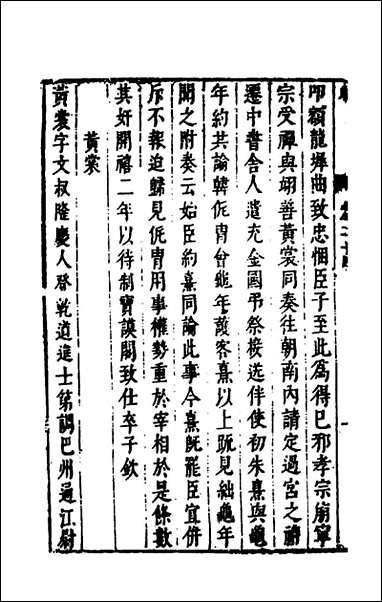 叩額龍墀曲致忠悃臣子至此爲得已邪孝宗崩寧
宗受禪與翊善黃裳同奏往朝南内請定過宮之禮
遷中書舍人遣充金國弔祭接送伴使初朱熹與龜
年約共論韓侂胄會龜年護客熹以上䟽見絀龜年
聞之附奏云始臣約熹同論此事今熹旣罷臣宜併
斥不報迨歸見侂胄用事權勢重於宰相於是條數
其奸開禧二年以待制寶謨閣致仕卒子欽
黃裳
黃裳字文叔隆慶人登乾道進士第調巴州通江尉